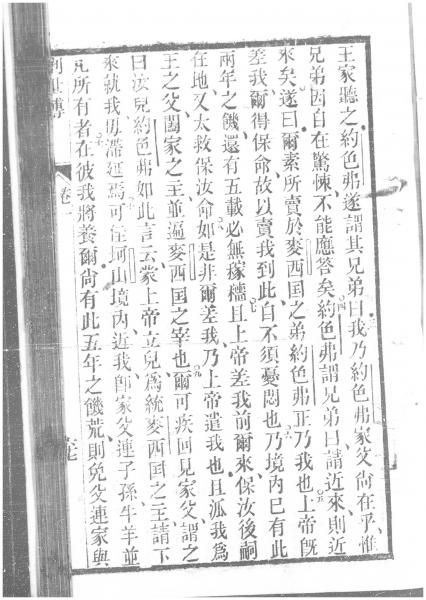 王家聽之約色弗遂謂其兄弟曰我乃約色弗家父尚在乎惟
兄弟因自在驚悚不能應答矣約色弗謂兄弟曰請近來則近
來矣遂曰爾素所賣於麥西国之弟約色弗正乃我也上帝既
差我爾得保命故以賣我到此自不須憂悶也乃境内已有此
兩年之饑還有五載必無稼穡且上帝差我前爾來保汝後嗣
在地又太救保汝命如是非爾差我乃上帝遣我也且派我為
王之父闔家之主並通麥西国之宰也爾可疾回見家父謂之
曰汝兒約色弗如此言云蒙上帝立兒為統麥西国之主請下
來就我毋滯延焉可住坷山境内近我卽家父連子孫牛羊並
凡所有者在彼我將養爾尚有此五年之饑荒則免父連家與
卷一